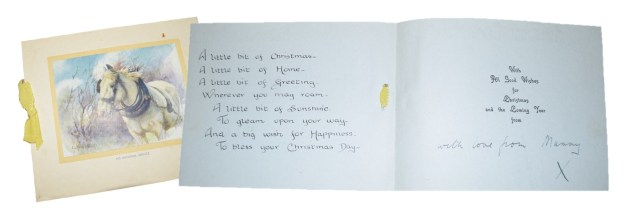 A little bit of Christmas.
A little bit of Home.
A little bit of Greeting
Wherever you may roam.
A little bit of Sunshine
To gleam upon your way.
And a big wish for Happiness.
To bless your Christmas Day.
With
All Good Wishes
for
Christmas
and the Coming Year
from
with love from Mummy
X